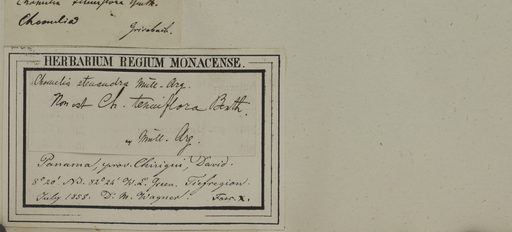 Chomelia tenuiflora Benth.
Chomelia
Grisebach.
HERBARIUM REGIUM MONACENSE.
Chomelia Müll-Arg.
Non est Ch. tenuiflora Bnth.
Müll-Arg.
Panama, prov. Chiriqui, David.
8°20' N.B. 82°24' W.L. Tiefregion
July 1858. Dr. M. Wagner.